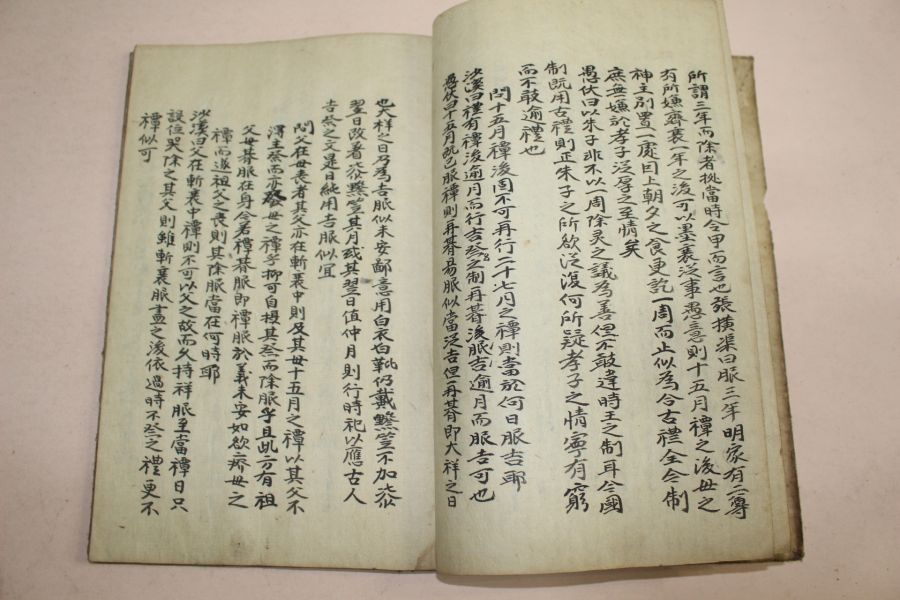 所謂三年而除者挑當時令甲而言也張橫渠曰服三年明家有二尊
有所嫌齊衰一年之後可以墨衰從事愚意則十五月禫之後母之
神主別置一處因上朝夕之食更訖一周而止似為今古禮全令制
庶無嫌於孝子泛厚之至情矣
愚伏曰以朱子非不以一周除灵之議為善但不敢違時王之制耳今國
制既用古禮則正朱子之所欲從復何所疑孝子之情寧有窮
而不敢逾禮也
問十五月禫後固不可再行二十七月之禫則當於何日服吉耶
沙溪曰禮有禫後逾月而行吉祭之制再朞後服吉逾月而服吉可也
愚伏曰十五月既已服禫則再朞易服似當從吉但再朞即大祥之日
也大祥之日乃為吉服似未安鄙意用白衣白靴仍戴黲笠不加漆
翌日改着漆黲笠其月或其翌日值仲月則行時祀以應古人
吉祭之文是日純用吉服似宜
問父在母喪者其父亦在斬衰中則及其母十五月之禫以其父不
得主祭而亦廢母之禫乎抑可自攝其祭而除服乎且此方有祖
父母朞服在身今若禫朞服即禫服於義未安如欲齊母之
禫而遂祖父之喪則其除服當在何時耶
沙溪曰父在斬衰中禫則不可以父之故而久持祥服至當禫日只
設位哭除之其父則雖斬衰服盡之後依過時不祭之禮更不
禫似可